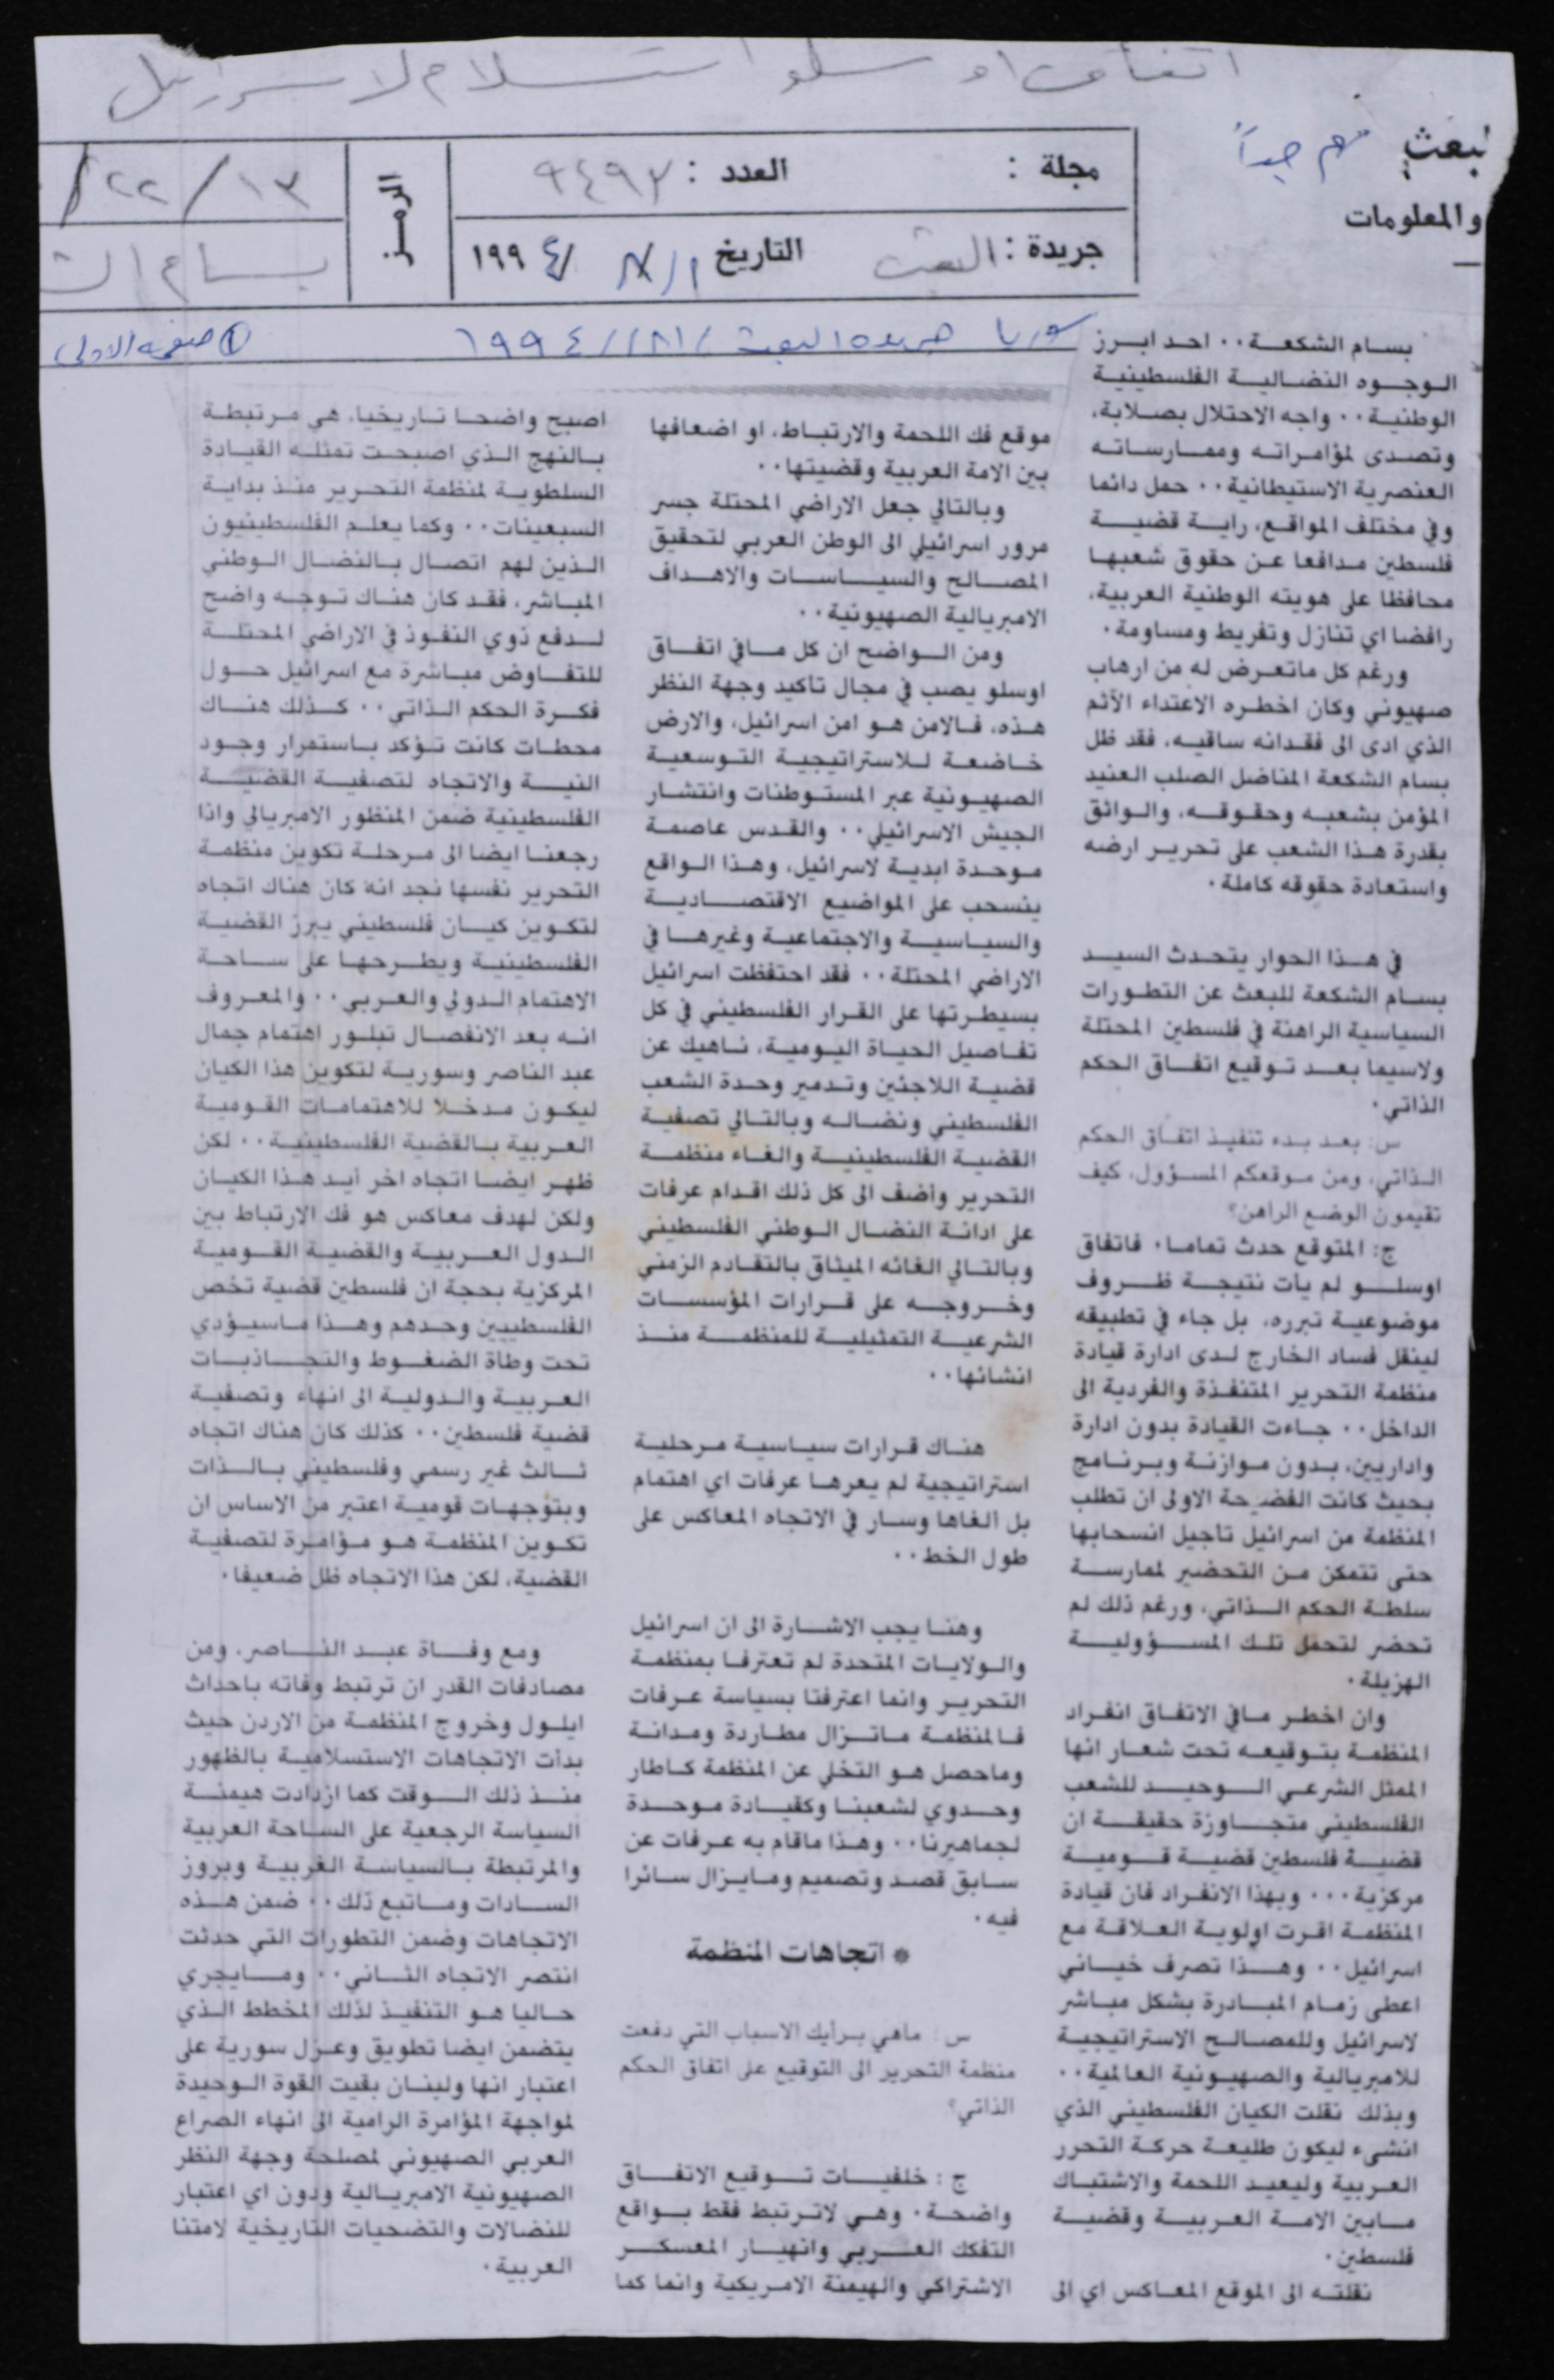 اتفاق اوسلو استسلام لاسرائيل
بعث مهم جداً
والمعلومات
مجلة :
العدد : ٩٤٩٣
جريدة : البعث
التاريخ ١ / ٨ / ١٩٩٤
الرمز
١٣ / ٢٢ /
بسام الش
سوريا جريدة البعث
١ صفحة الاولى
بسام الشكعة ٠٠ احد ابرز
الوجوه النضالية الفلسطينية
الوطنية ٠٠ واجه الاحتلال بصلابة،
وتصدى لمؤامراته وممارساته
العنصرية الاستيطانية ٠٠ حمل دائما
وفي مختلف المواقع، راية قضية
فلسطين مدافعا عن حقوق شعبها
محافظا على هويته الوطنية العربية،
رافضا اي تنازل وتفريط ومساومة ٠
ورغم كل ماتعرض له من ارهاب
صهيوني وكان اخطره الاعتداء الآثم
الذي ادى الى فقدانه ساقيه، فقد ظل
بسام الشكعة المناضل الصلب العنيد
المؤمن بشعبه وحقوقه، والواثق
بقدرة هذا الشعب على تحرير ارضه
واستعادة حقوقه كاملة ٠
في هذا الحوار يتحدث السيد
بسام الشكعة للبعث عن التطورات
السياسية الراهنة في فلسطين المحتلة
ولاسيما بعد توقيع اتفاق الحكم
الذاتي ٠
س: بعد بدء تنفيذ اتفاق الحكم
الذاتي، ومن موقعكم المسؤول، كيف
تقيمون الوضع الراهن؟
ج: المتوقع حدث تماما ٠ فاتفاق
اوسلو لم يات نتيجة ظروف
موضوعية تبرره، بل جاء في تطبيقه
لينقل فساد الخارج لدى ادارة قيادة
منظمة التحرير المتنفذة والفردية الى
الداخل ٠٠ جاءت القيادة بدون ادارة
واداريين، بدون موازنة وبرنامج
بحيث كانت الفضيحة الاولى ان تطلب
المنظمة من اسرائيل تأجيل انسحابها
حتى تتمكن من التحضير لممارسة
سلطة الحكم الذاتي، ورغم ذلك لم
تحضر لتحمل تلك المسؤولية
الهزيلة ٠
وان اخطر مافي الاتفاق انفراد
المنظمة بتوقيعه تحت شعار انها
الممثل الشرعي الوحيد للشعب
الفلسطيني متجاوزة حقيقة ان
قضية فلسطين قضية قومية
مركزية ٠٠٠ وبهذا الانفراد فان قيادة
المنظمة اقرت اولوية العلاقة مع
اسرائيل ٠٠ وهذا تصرف خياني
اعطى زمام المبادرة بشكل مباشر
لاسرائيل وللمصالح الاستراتيجية
للامبريالية والصهيونية العالمية ٠٠
وبذلك نقلت الكيان الفلسطيني الذي
انشىء ليكون طليعة حركة التحرر
العربية وليعيد اللحمة والاشتباك
مابين الامة العربية وقضية
فلسطين ٠
نقلته الى الموقع المعاكس اي الى
موقع فك اللحمة والارتباط، او اضعافها
بين الامة العربية وقضيتها ٠٠
وبالتالي جعل الاراضي المحتلة جسر
مرور اسرائيلي الى الوطن العربي لتحقيق
المصالح والسياسات والاهداف
الامبريالية الصهيونية ٠٠
ومن الواضح ان كل مافي اتفاق
اوسلو يصب في مجال تاكيد وجهة النظر
هذه، فالامن هو امن اسرائيل، والارض
خاضعة للاستراتيجية التوسعية
الصهيونية عبر المستوطنات وانتشار
الجيش الاسرائيلي ٠٠ والقدس عاصمة
موحدة ابدية لاسرائيل، وهذا الواقع
ينسحب على المواضيع الاقتصادية
والسياسية والاجتماعية وغيرها في
الاراضي المحتلة ٠٠ فقد احتفظت اسرائيل
بسيطرتها على القرار الفلسطيني في كل
تفاصيل الحياة اليومية، ناهيك عن
قضية اللاجئين وتدمير وحدة الشعب
الفلسطيني ونضاله وبالتالي تصفية
القضية الفلسطينية والغاء منظمة
التحرير وأضف الى كل ذلك اقدام عرفات
على ادانة النضال الوطني الفلسطيني
وبالتالي الغائه الميثاق بالتقادم الزمني
وخروجه على قرارات المؤسسات
الشرعية التمثيلية للمنظمة منذ
انشائها ٠٠
هناك قرارات سياسية مرحلية
استراتيجية لم يعرها عرفات اي اهتمام
بل الغاها وسار في الاتجاه المعاكس على
طول الخط ٠٠
وهنا يجب الاشارة الى ان اسرائيل
والولايات المتحدة لم تعترفا بمنظمة
التحرير وانما اعترفتا بسياسة عرفات
فالمنظمة ماتزال مطاردة ومدانة
وماحصل هو التخلي عن المنظمة كاطار
وحدوي لشعبنا وكقيادة موحدة
لجماهيرنا ٠٠ وهذا ماقام به عرفات عن
سابق قصد وتصميم ومايزال سائرا
فيه ٠
* اتجاهات المنظمة
س : ماهي برأيك الاسباب التي دفعت
منظمة التحرير الى التوقيع على اتفاق الحكم
الذاتي؟
ج : خلفيات توقيع الاتفاق
واضحة ٠ وهي لاترتبط فقط بواقع
التفكك العربي وانهيار المعسكر
الاشتراكي والهيمنة الامريكية وانما كما
اصبح واضحا تاريخيا، هي مرتبطة
بالنهج الذي اصبحت تمثله القيادة
السلطوية لمنظمة التحرير منذ بداية
السبعينات ٠٠ وكما يعلم الفلسطينيون
الذين لهم اتصال بالنضال الوطني
المباشر، فقد كان هناك توجه واضح
لدفع ذوي النفوذ في الاراضي المحتلة
للتفاوض مباشرة مع اسرائيل حول
فكرة الحكم الذاتي ٠٠ كذلك هناك
محطات كانت تؤكد باستمرار وجود
النية والاتجاه لتصفية القضية
الفلسطينية ضمن المنظور الامبريالي واذا
رجعنا ايضا الى مرحلة تكوين منظمة
التحرير نفسها نجد انه كان هناك اتجاه
لتكوين كيان فلسطيني يبرز القضية
الفلسطينية ويطرحها على ساحة
الاهتمام الدولي والعربي ٠٠ والمعروف
انه بعد الانفصال تبلور اهتمام جمال
عبد الناصر وسورية لتكوين هذا الكيان
ليكون مدخلا للاهتمامات القومية
العربية بالقضية الفلسطينية ٠٠ لكن
ظهر ايضا اتجاه اخر أيد هذا الكيان
ولكن لهدف معاكس هو فك الارتباط بين
الدول العربية والقضية القومية
المركزية بحجة ان فلسطين قضية تخص
الفلسطيين وحدهم وهذا ماسيؤدي
تحت وطاة الضغوط والتجاذبات
العربية والدولية الى انهاء وتصفية
قضية فلسطين ٠٠ كذلك كان هناك اتجاه
ثالث غير رسمي وفلسطيني بالذات
وبتوجهات قومية اعتبر من الاساس ان
تكوين المنظمة هو مؤامرة لتصفية
القضية، لكن هذا الاتجاه ظل ضعيفا ٠
ومع وفاة عبد الناصر، ومن
مصادفات القدر ان ترتبط وفاته باحداث
ايلول وخروج المنظمة من الاردن حيث
بدأت الاتجاهات الاستسلامية بالظهور
منذ ذلك الوقت كما ازدادت هيمنة
السياسة الرجعية على الساحة العربية
والمرتبطة بالسياسة الغربية وبروز
السادات وماتبع ذلك ٠٠ ضمن هذه
الاتجاهات وضمن التطورات التي حدثت
انتصر الاتجاه الثاني ٠٠ ومايجري
حاليا هو التنفيذ لذلك المخطط الذي
يتضمن ايضا تطويق وعزل سورية على
اعتبار انها ولبنان بقيت القوة الوحيدة
لمواجهة المؤامرة الرامية الى انهاء الصراع
العربي الصهيوني لمصلحة وجهة النظر
الصهيونية الامبريالية ودون اي اعتبار
للنضالات والتضحيات التاريخية لامتنا
العربية ٠